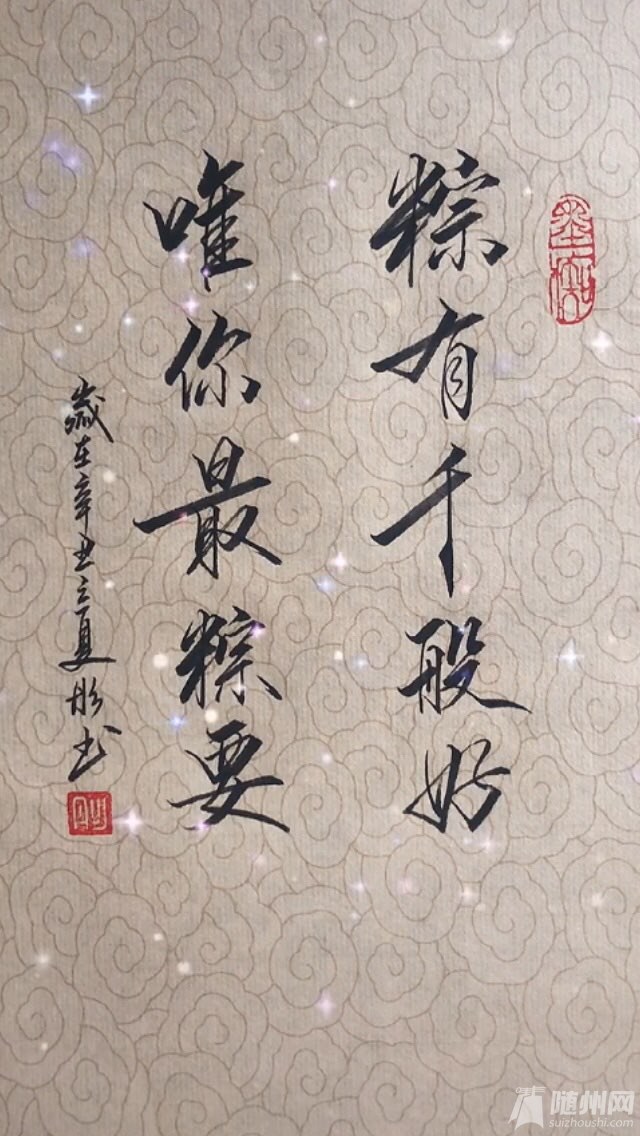 粽有千般好
唯你最粽要
岁在辛丑立夏彤书
随州网
suizhoushi.com